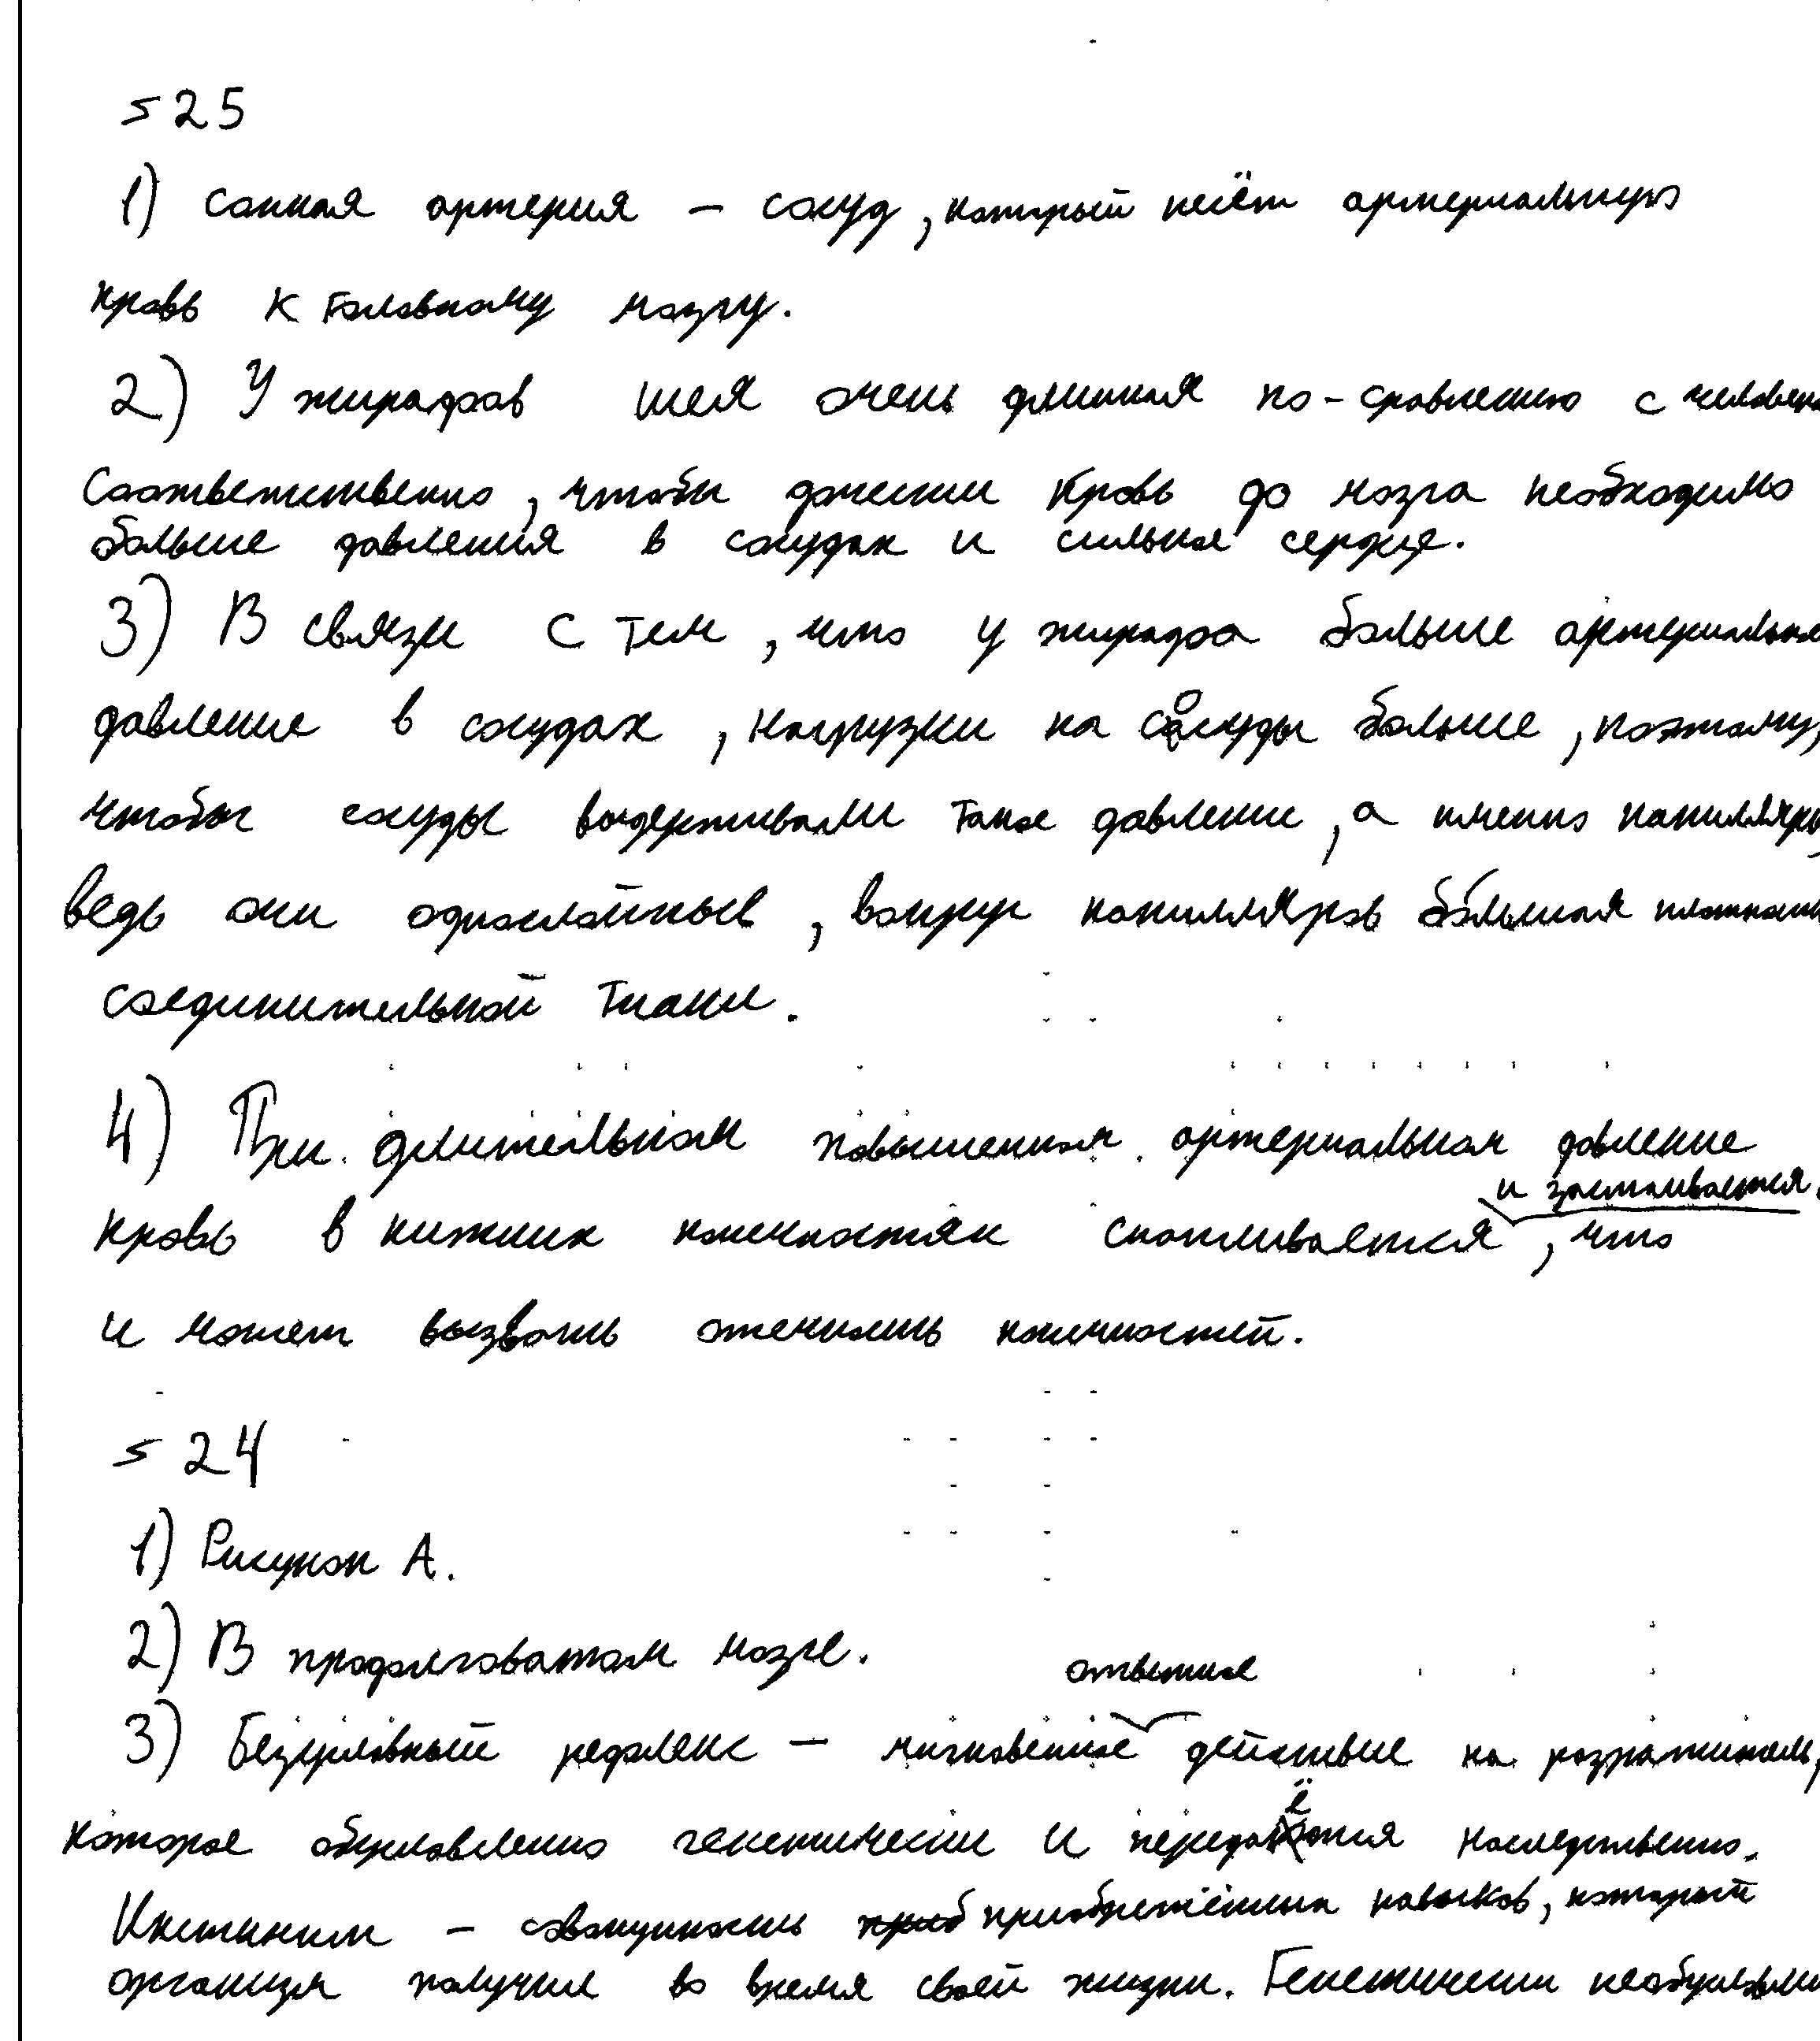 S 25
1) Сонная артерия – сосуд, который несёт артериальную
кровь к головному мозгу.
2) У жирафов шея очень длинная по-сравнению с человеко
Соответственно, чтобы донести кровь до мозга необходимо
больше давления в сосудах и сильное сердце.
3) В связи с тем, что у жирафа больше артериальное
давление в сосудах, нагрузки на сосуды больше, поэтому,
чтобы сосуды выдерживали такое давление, а именно капилляры,
ведь они однослойные, вокруг капилляров бо́льшая плотность
соединительной ткани.
4) При длительном повышенном артериальном давление
и застаивается,
кровь в нижних конечностях скапливается, что
и может вызвать отечность конечностей.
S 24
1) Рисунок А.
2) В продолговатом мозге.
ответное
3) Безусловный рефлекс – мгновенное действие на раздражитель,
которое обусловленно генетически и передаётся наследственно.
Инстинкт – совокупность приобретённых навыков, который
организм получил во время своей жизни. Генетически необусловле